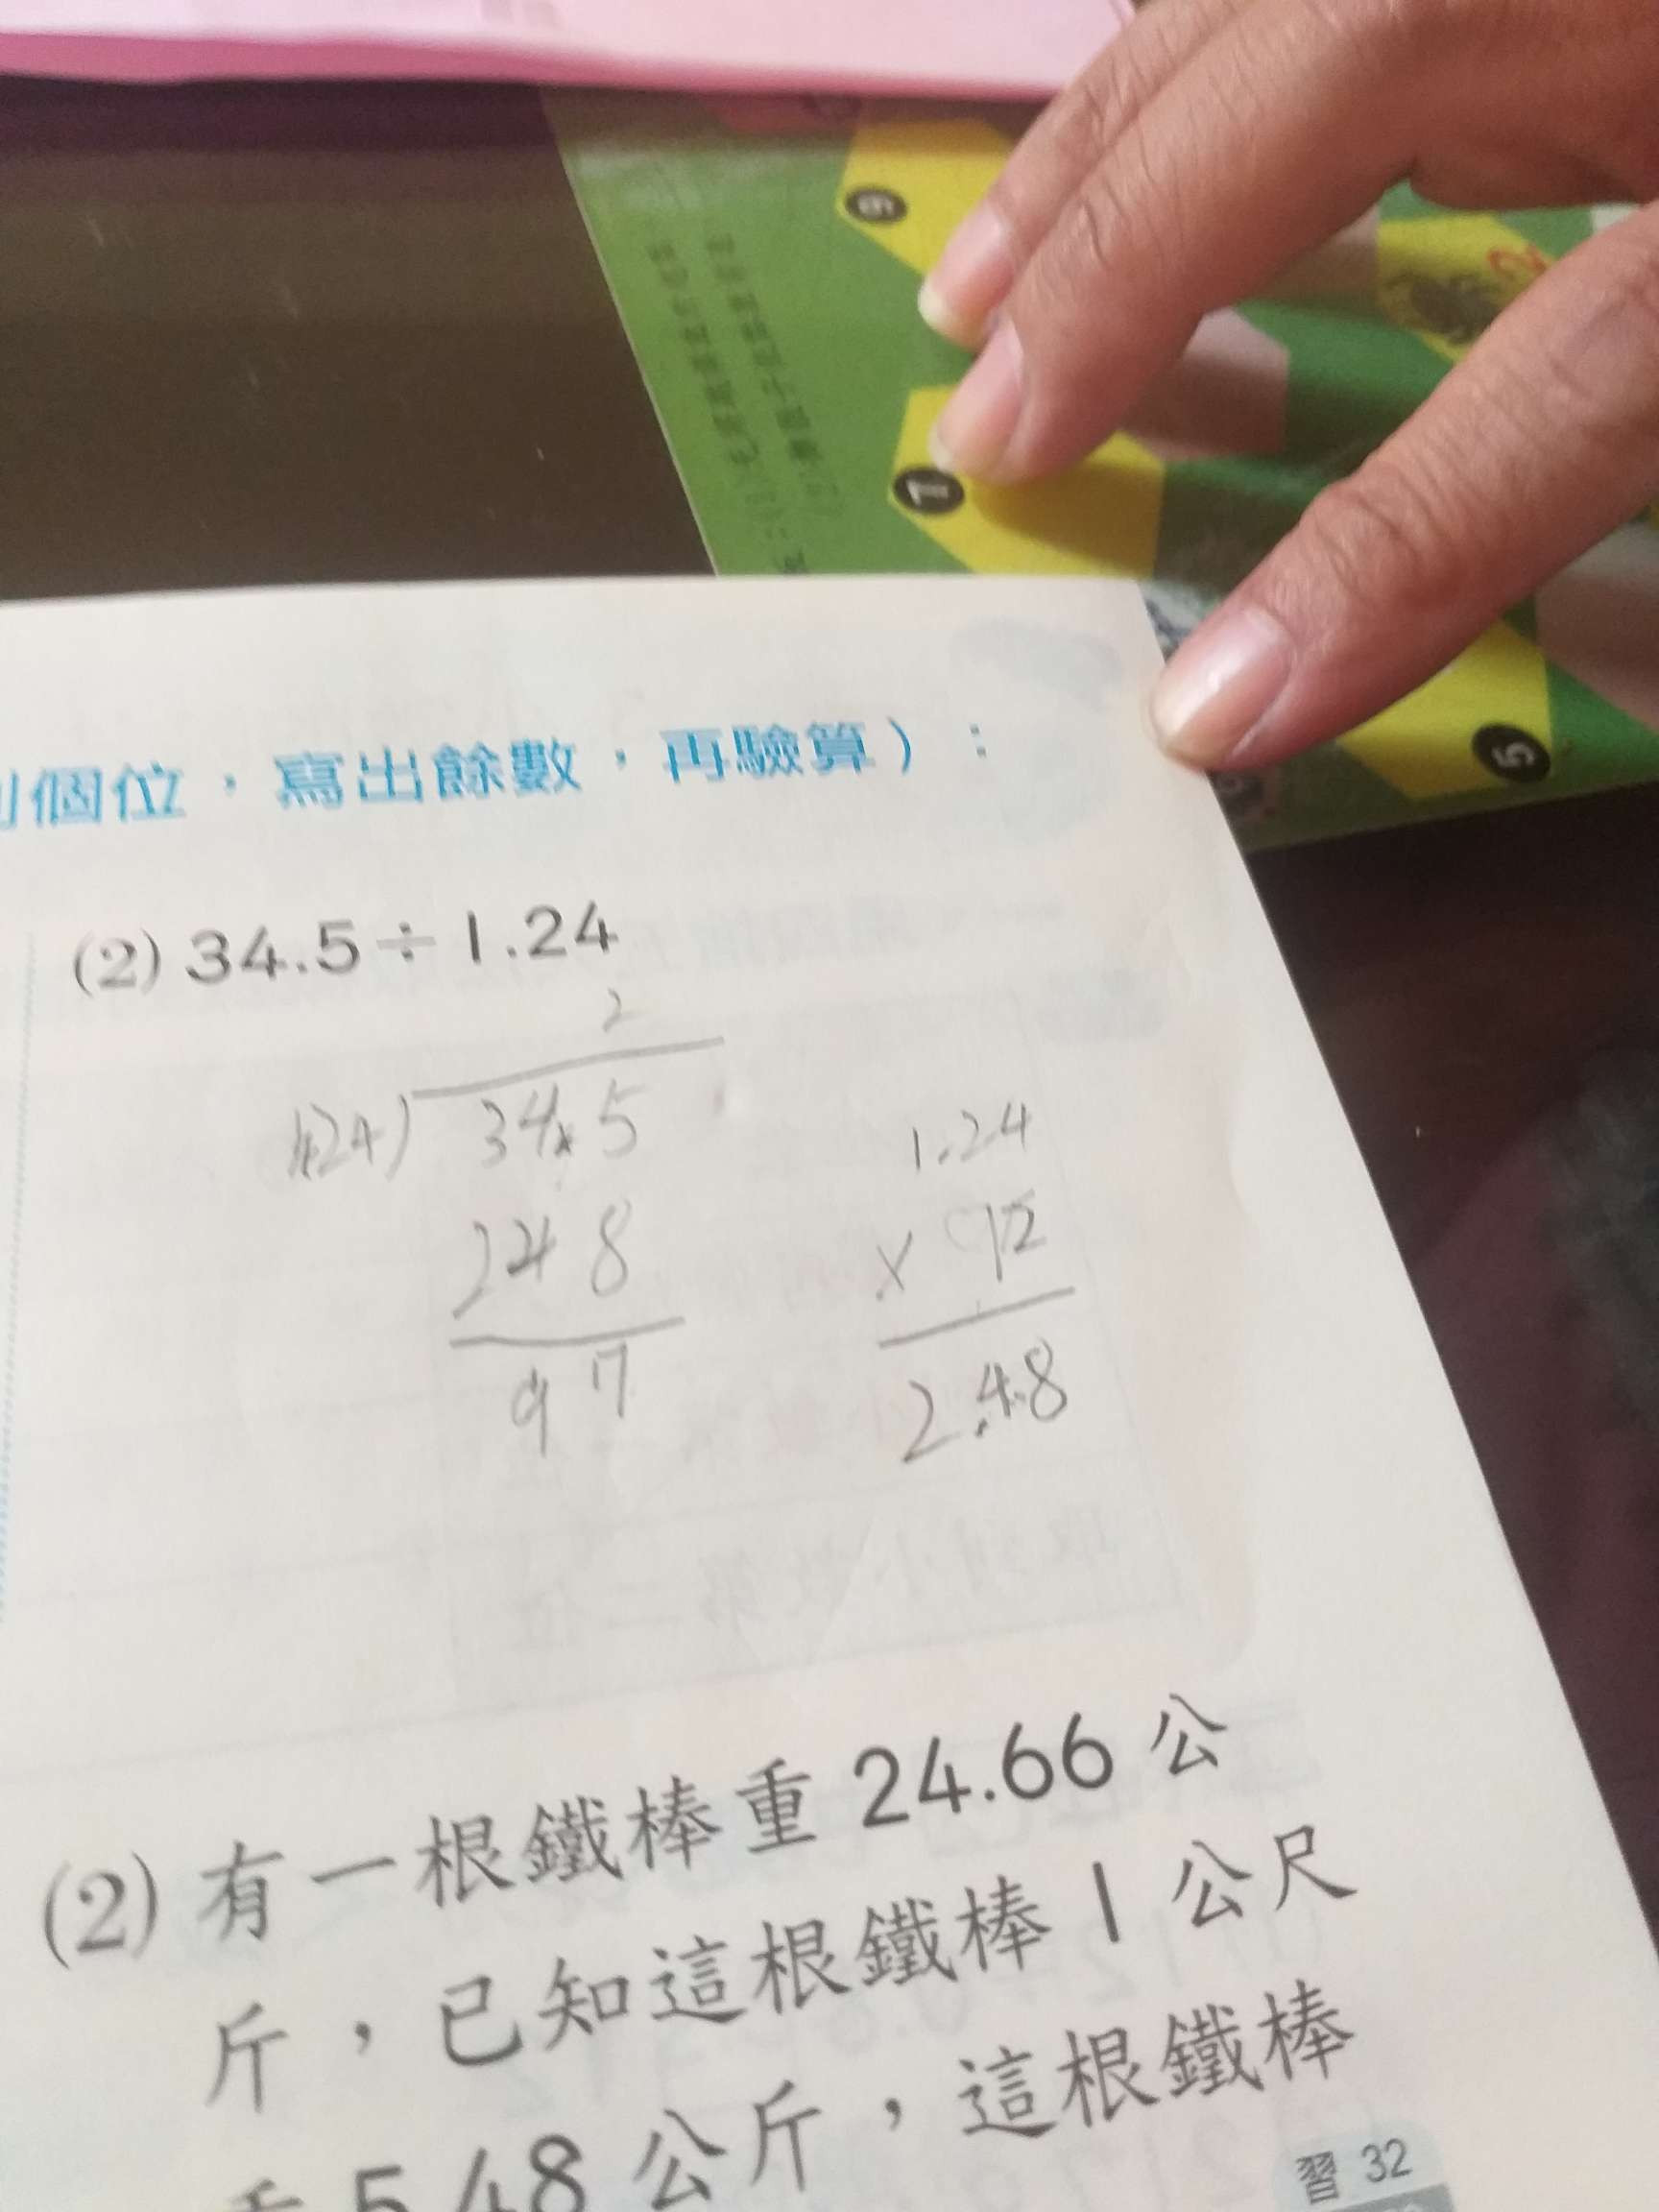 個位，寫出餘數，再驗算）：
(2) 34.5÷1.24
2
1.24) 34.5
248
97
1.24
× 12
2.48
(2) 有一根鐵棒重 24.66 公
斤，已知這根鐵棒 1 公尺
重 5.48 公斤，這根鐵棒
習 32
6
1
5
2